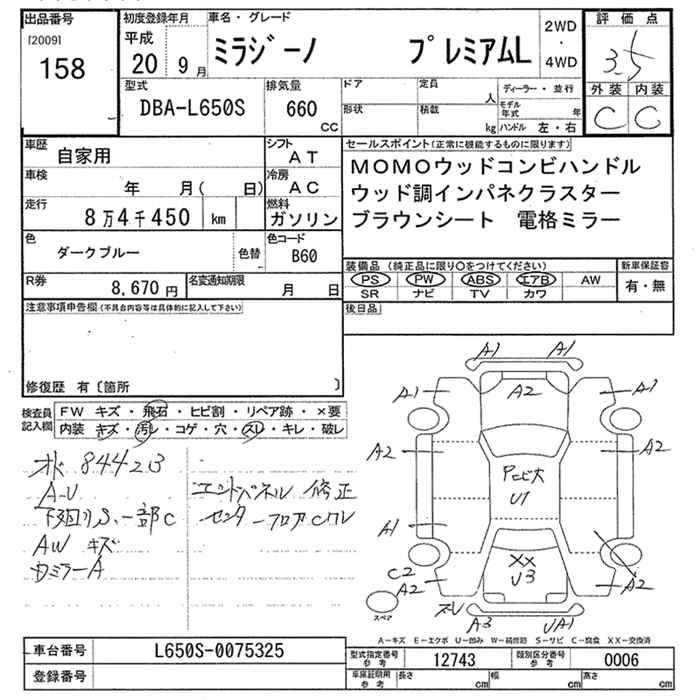 出品番号
[2009]
158
初度登録年月
平成
20 9月
車名・グレード
ミラジーノ プレミアムL
2WD
・
4WD
評価点
3.5
外装 内装
C C
型式
DBA-L650S
排気量
660
cc
ドア
形状
定員
人
積載
kg
ディーラー・並行
モデル年式 年
ハンドル 左・右
車歴
自家用
シフト
AT
車検
年 月( 日)
冷房
AC
走行
8万4千450 km
燃料
ガソリン
色
ダークブルー
色替
色コード
B60
R券
8,670 円
名変通知期限
月 日
セールスポイント(正常に機能するものに限ります)
MOMOウッドコンビハンドル
ウッド調インパネクラスター
ブラウンシート 電格ミラー
装備品 (純正品に限り○をつけてください)
新車保証書
PS PW ABS エアB AW
SR ナビ TV カワ
有・無
後日品
注意事項申告欄(不具合内容等は具体的に記入して下さい)
修復歴 有〔箇所 〕
検査員記入欄
FW キズ・飛石・ヒビ割・リペア跡・×要
内装 キズ・汚レ・コゲ・穴・スレ・キレ・破レ
84423
A-U
下回りS、一部C
AW キズ
Dミラー A
エンドパネル 修正
センターフロアCワレ
A1 A1
A1 A2 A1
A2 A2
Pコビ大
U1
A1
XX
U3
C2
A2 A2
ズレ
A3 UA1
スペア
A-キズ E-エクボ U-凹み W-補修跡 S-サビ C-腐食 XX-交換済
車台番号
L650S-0075325
登録番号
型式指定番号
参考
12743
類別区分番号
参考
0006
車庫証明用
参考
長さ cm
幅 cm
高さ cm